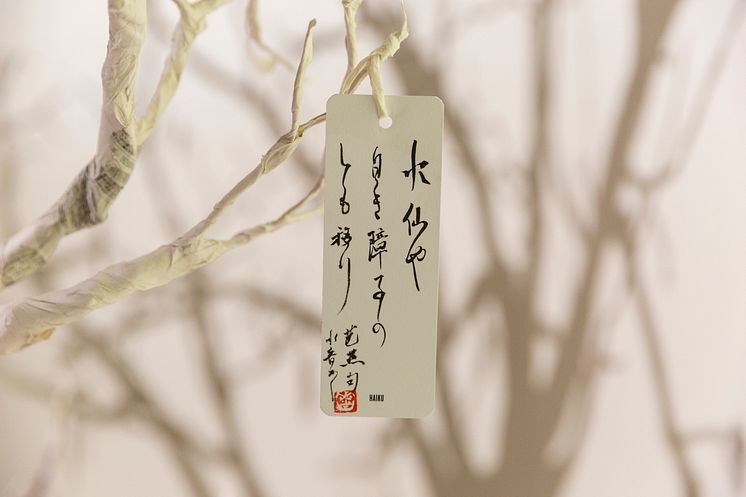 水仙や
白き障子の
とも移り
芭蕉句
HAIKU